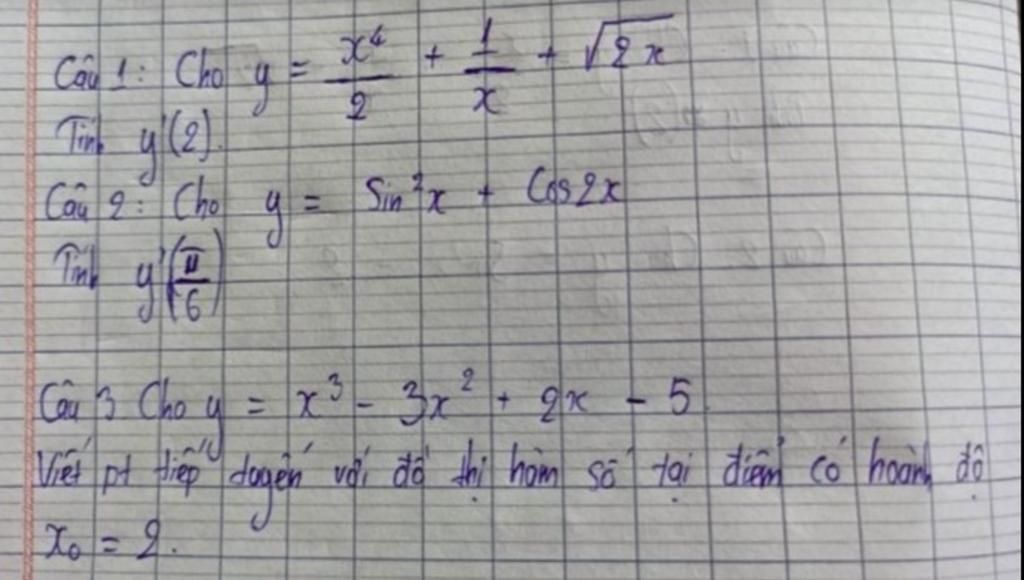 Câu 1: Cho y = x⁴/2 + 1/x + √2x
Tính y'(2).
Câu 2: Cho y = Sin²x + Cos2x
Tính y'(π/6)
Câu 3 Cho y = x³ - 3x² + 2x - 5.
Viết pt tiếp tuyến với đồ thị hàm số tại điểm có hoành độ
x₀ = 2.